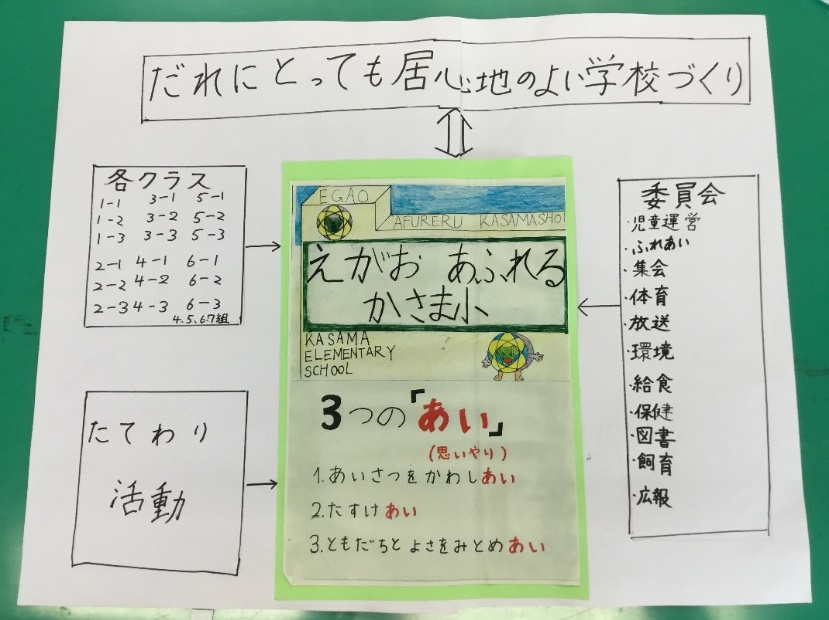 だれにとっても居心地のよい学校づくり
各クラス
1-1 3-1 5-1
1-2 3-2 5-2
1-3 3-3 5-3
2-1 4-1 6-1
2-2 4-2 6-2
2-3 4-3 6-3
4.5.6.7組
たてわり
活動
EGAO
AFURERU KASAMASHO
えがお あふれる
かさま小
KASAMA
ELEMENTARY
SCHOOL
3つの「あい」
(思いやり)
1.あいさつをかわしあい
2.たすけあい
3.ともだちと よさをみとめあい
委員会
・児童運営
・ふれあい
・集会
・体育
・放送
・環境
・給食
・保健
・図書
・飼育
・広報